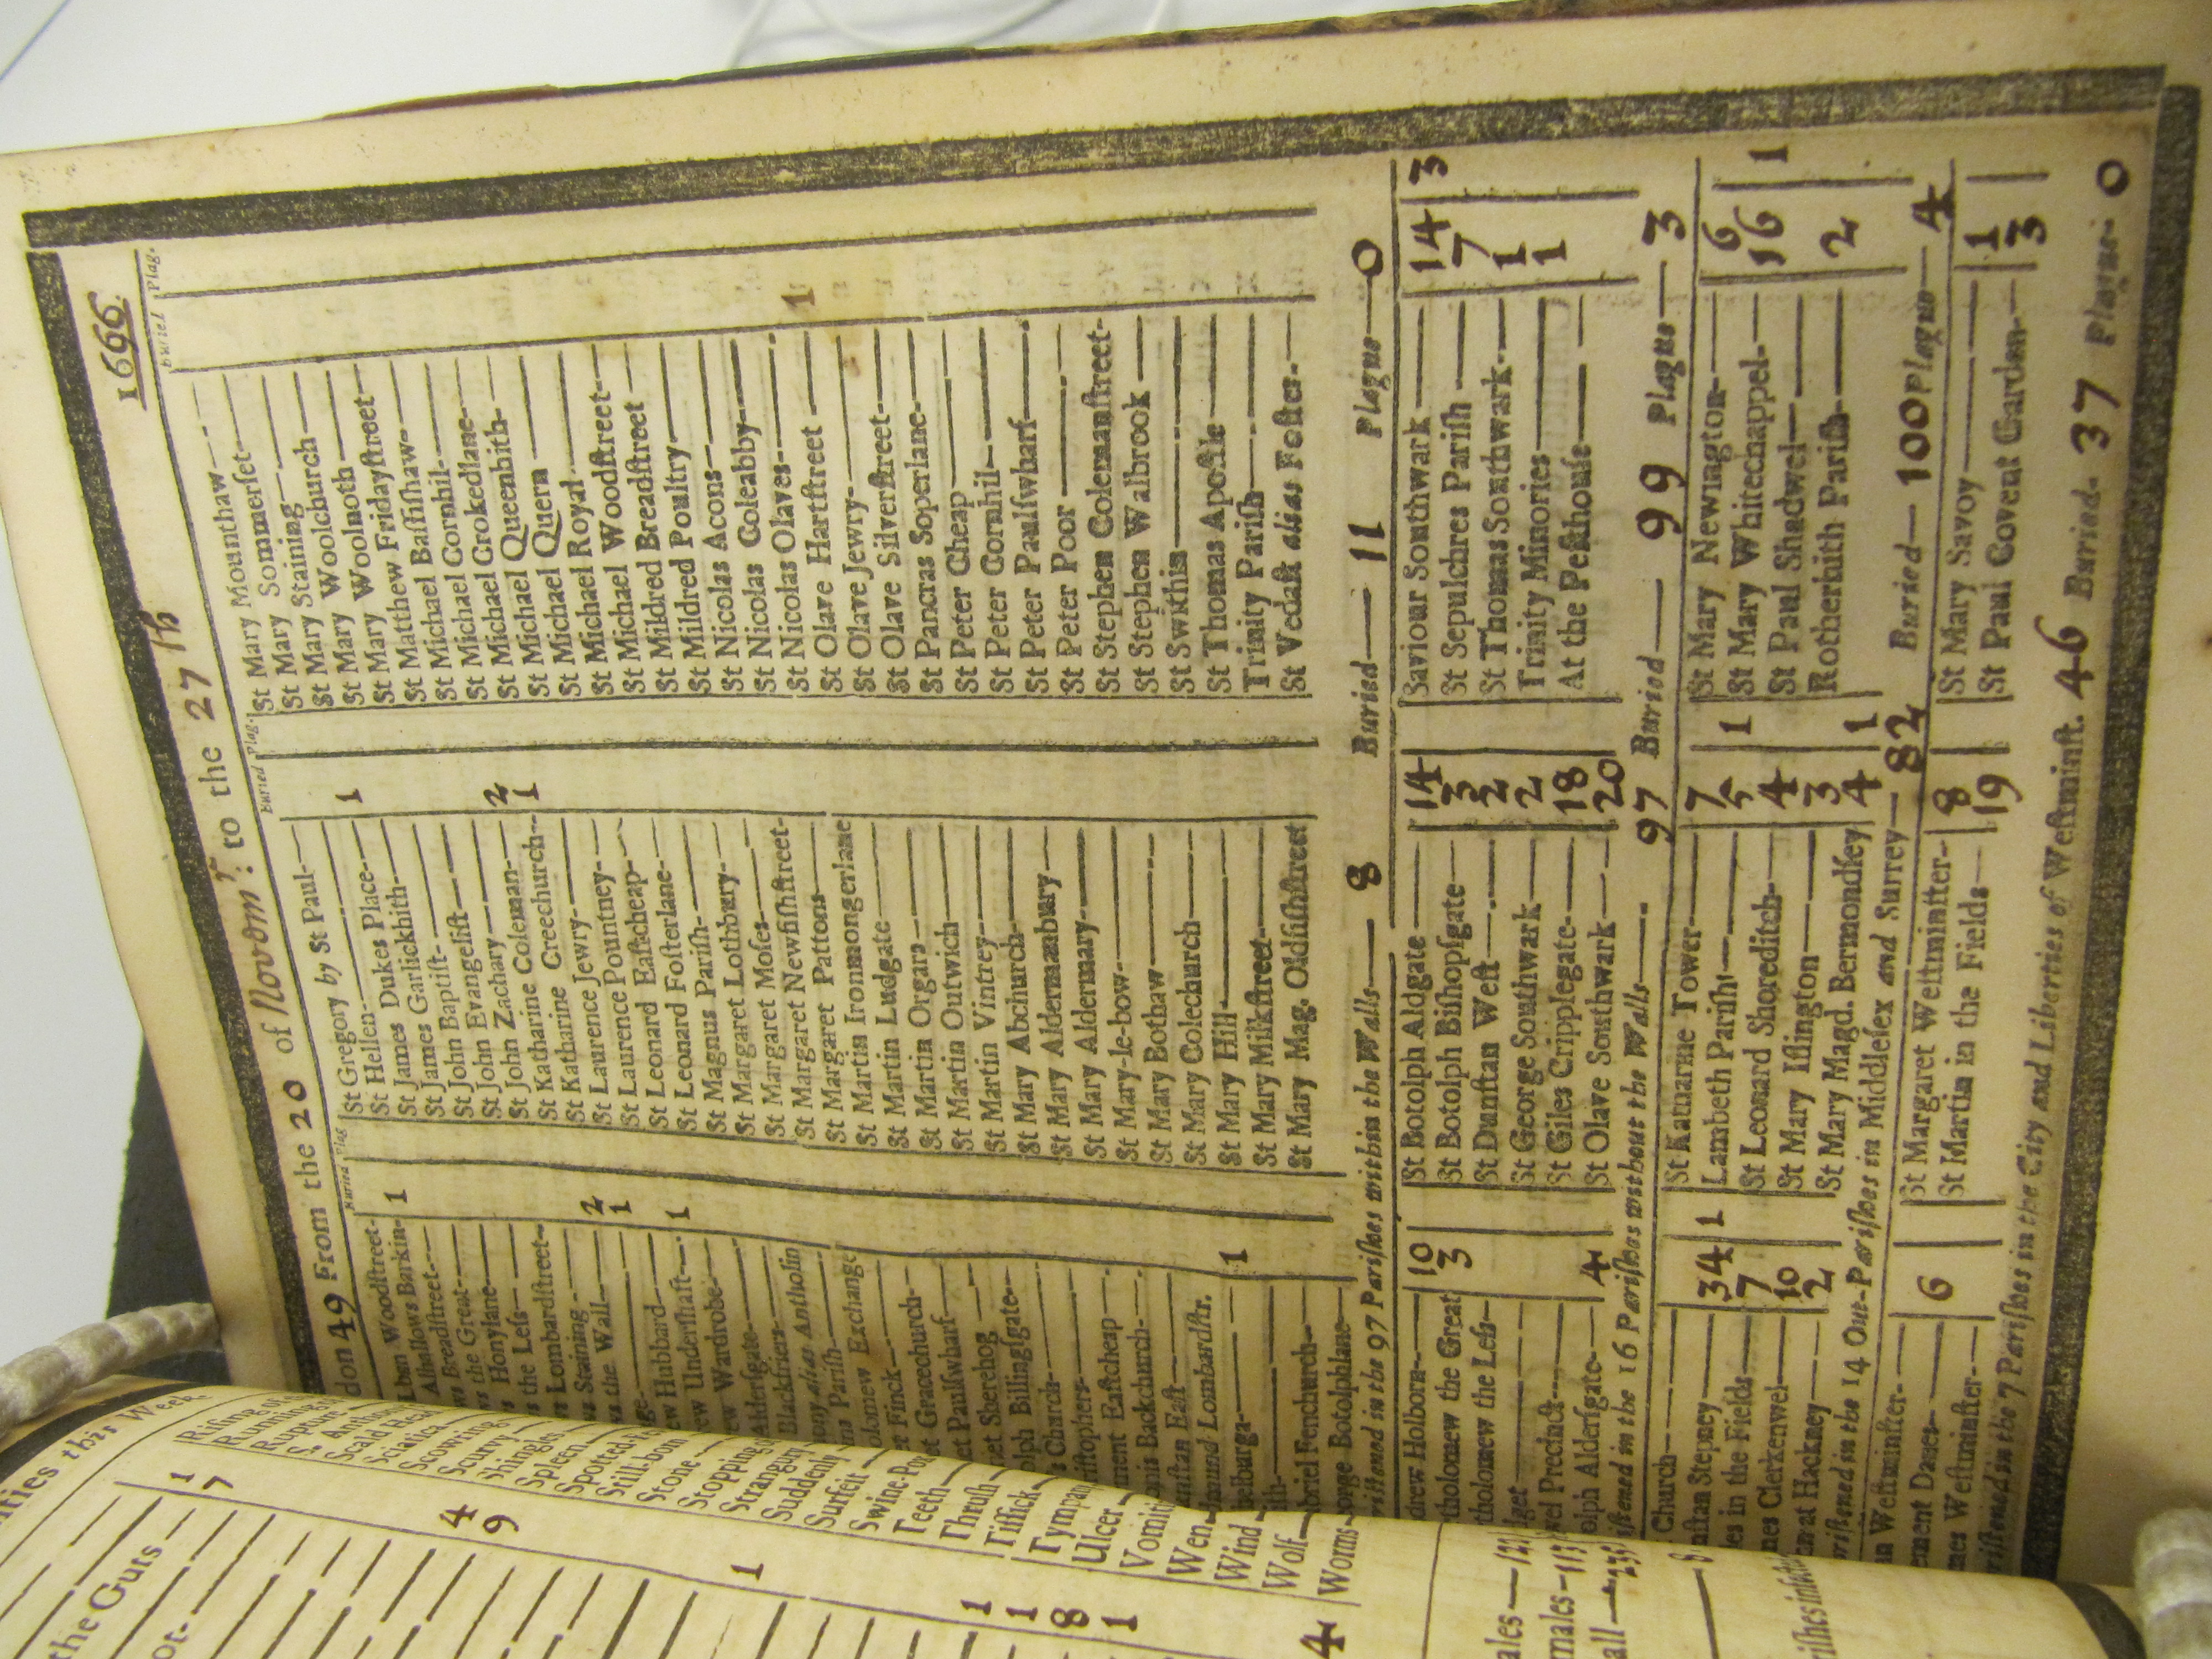 1666
don 49 From the 20 of Novemr: to the 27th
Buried Plag
lban Woodſtreet
Alhallows Barkin 1
Breadſtreet
s the Great
Honylane
s the Leſs
Lombardſtreet
s Staining
s the Wall 2
ge 1
w Hubbard
ew Underſhaft 1
w Wardrobe
Alderſgate
Blackfriers
ony alias Antholin
Pariſh
olomew Exchange
Finck
et Gracechurch
et Paulſwharf
et Sherehog
olph Billingſgate
s Church
riſtophers
ment Eaſtcheap
onis Backchurch
nſtan Eaſt
nund Lombardſtr.
helburga 1
briel Fenchurch
orge Botolphlane
Buried Plag.
St Gregory by St Paul
St Hellen 1
St James Dukes Place
St James Garlickhith
St John Baptiſt
St John Evangeliſt
St John Zachary
St Katharine Coleman 2
St Katharine Creechurch 1
St Laurence Jewry
St Laurence Pountney
St Leonard Eaſtcheap
St Leonard Foſterlane
St Magnus Pariſh
St Margaret Lothbury
St Margaret Moſes
St Margaret Newfiſhſtreet
St Margaret Pattons
St Martin Ironmongerlane
St Martin Ludgate
St Martin Orgars
St Martin Outwich
St Martin Vintrey
St Mary Abchurch
St Mary Aldermanbury
St Mary Aldermary
St Mary-le-bow
St Mary Bothaw
St Mary Colechurch
St Mary Hill
St Mary Milkſtreet
St Mary Mag. Oldfiſhſtreet
Buried Plag.
St Mary Mounthaw
St Mary Sommerſet
St Mary Staining
St Mary Woolchurch
St Mary Woolnoth
St Mary Fridayſtreet
St Matthew
St Michael Baſſiſhaw
St Michael Cornhil
St Michael Crokedlane
St Michael Queenhith
St Michael Quern
St Michael Royal
St Michael Woodſtreet
St Mildred Breadſtreet
St Mildred Poultry
St Nicolas Acons
St Nicolas Coleabby
St Nicolas Olaves
St Olave Hartſtreet 1
St Olave Jewry
St Olave Silverſtreet
St Pancras Soperlane
St Peter Cheap
St Peter Cornhil
St Peter Paulſwharf
St Peter Poor
St Stephen Colemanſtreet
St Stephen Walbrook
St Swithin
St Thomas Apoſtle
Trinity Pariſh
St Vedaſt alias Foſter
riſtened in the 97 Pariſhes within the Walls 8 Buried 11 Plague 0
drew Holborn 10
tholomew the Great 3
tholomew the Leſs
dget
wel Precinct
olph Alderſgate 4
St Botolph Aldgate 14
St Botolph Biſhopſgate 3
St Dunſtan Weſt 2
St George Southwark 2
St Giles Cripplegate 18
St Olave Southwark 20
Saviour Southwark 14 3
St Sepulchres Pariſh 7
St Thomas Southwark 1
Trinity Minories 1
At the Peſthouſe
iſtened in the 16 Pariſhes without the Walls 97 Buried 99 Plague 3
Church
nſtan Stepney 34 1
es in the Fields 7
nes Clerkenwel 10
n at Hackney 2
St Katharine Tower 7
Lambeth Pariſh 5 1
St Leonard Shoreditch 4
St Mary Iſlington 3
St Mary Magd. Bermondſey 4 1
St Mary Newington 6
St Mary Whitechappel 16 1
St Paul Shadwel
Rotherhith Pariſh 2
riſtened in the 14 Out-Pariſhes in Middleſex and Surrey 82 Buried 100 Plague 4
n Weſtminſter
ement Danes 6
mes Weſtminſter
St Margaret Weſtminſter 8
St Martin in the Fields 19
St Mary Savoy 1
St Paul Covent Garden 3
riſtened in the 7 Pariſhes in the City and Liberties of Weſtminſt. 46 Buried 37 Plague 0
this Week
the Guts 1
7
4
9
1
1
1
8
1
4
Riſing
Running
Rupture
Scald Hea
Sciatica
Scowring
Scurvy
Shingles
Spleen
Spotted
Still-born
Stone
Stopping
Strangury
Suddenly
Surfeit
Swine-Pox
Teeth
Thruſh
Tiſſick
Tympany
Ulcer
Vomiti
Wen
Wind
Wolf
Worms
ales 121
males 113
all 235